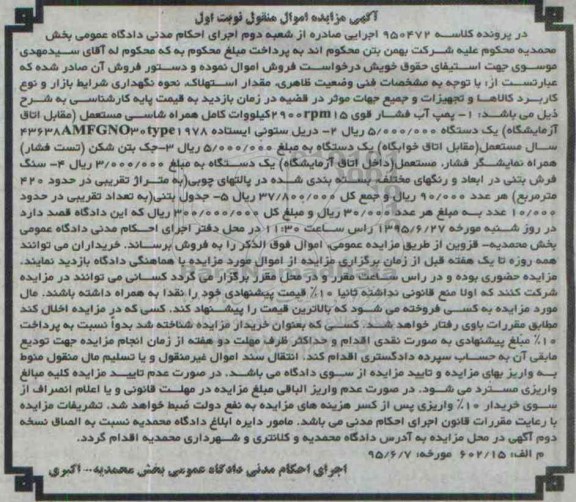 آگهی مزایده اموال منقول نوبت اول
در پرونده کلاسه ۹۵۰۴۷۲ اجرایی صادره از شعبه دوم اجرای احکام مدنی دادگاه عمومی بخش
محمدیه محکوم علیه شرکت بهمن بتن محکوم اند به پرداخت مبلغ محکوم به که محکوم له آقای سیدمهدی
موسوی جهت استیفای حقوق خویش درخواست فروش اموال نموده و دستور فروش آن صادر شده که
عبارتست از: با توجه به مشخصات فنی وضعیت ظاهری، مقدار استهلاک، نحوه نگهداری شرایط بازار و نوع
کاربرد کالاها و تجهیزات و جمیع جهات موثر در قضیه در زمان بازدید به قیمت پایه کارشناسی به شرح
ذیل می باشد: ۱- پمپ آب فشار قوی ۱۵ ۲۹۰۰rpm کیلووات کامل همراه شاسی مستعمل (مقابل اتاق
آزمایشگاه) یک دستگاه ۵/۰۰۰/۰۰۰ ریال ۲- دریل ستونی ایستاده ۱۹۷۸ ۴۳۶۳۸AMFGNO۳۰type
سال مستعمل(مقابل اتاق خوابگاه) یک دستگاه به مبلغ ۵/۰۰۰/۰۰۰ ریال ۳-جک بتن شکن (تست فشار)
همراه نمایشگر فشار، مستعمل(داخل اتاق آزمایشگاه) یک دستگاه به مبلغ ۳/۰۰۰/۰۰۰ ریال ۴- سنگ
فرش بتنی در ابعاد و رنگهای مختلف بسته بندی شده در پالتهای چوبی(به متراژ تقریبی در حدود ۴۲۰
مترمربع) هر عدد ۹۰/۰۰۰ ریال و جمع کل ۳۷/۸۰۰/۰۰۰ ریال ۵- جدول بتنی(به تعداد تقریبی در حدود
۱۰/۰۰۰ عدد به مبلغ هر عدد ۳۰/۰۰۰ ریال و مبلغ کل ۳۰۰/۰۰۰/۰۰۰ ریال که این دادگاه قصد دارد
در روز شنبه مورخه ۱۳۹۵/۶/۲۷ راس ساعت ۱۱:۳۰ در محل دفتر اجرای احکام مدنی دادگاه عمومی
بخش محمدیه- قزوین از طریق مزایده عمومی، اموال فوق الذکر را به فروش برساند. خریداران می توانند
همه روزه تا یک هفته قبل از زمان برگزاری مزایده از اموال مورد مزایده با هماهنگی دادگاه بازدید نمایند.
مزایده حضوری بوده و در راس ساعت مقرر و در محل مقرر برگزار می گردد کسانی می توانند در مزایده
شرکت کنند که اولا منع قانونی نداشته ثانیا ۱۰٪ قیمت پیشنهادی خود را نقدا به همراه داشته باشند. مال
مورد مزایده به کسی فروخته می شود که بالاترین قیمت را پیشنهاد کند. کسی که در مزایده اخلال کند
مطابق مقررات باوی رفتار خواهد شد. کسی که بعنوان خریدار مزایده شناخته شد بدوا نسبت به پرداخت
۱۰٪ مبلغ پیشنهادی به صورت نقدی اقدام و حداکثر ظرف مهلت دو هفته از زمان انجام مزایده جهت تودیع
مابقی آن به حساب سپرده دادگستری اقدام کند. انتقال سند اموال غیرمنقول و یا تسلیم مال منقول منوط
به واریز بهای مزایده و تایید مزایده از سوی دادگاه می باشد. در صورت عدم تایید مزایده کلیه مبالغ
واریزی مسترد می شود. در صورت عدم واریز الباقی مبلغ مزایده در مهلت قانونی و یا اعلام انصراف از
سوی خریدار ۱۰٪ واریزی پس از کسر هزینه های مزایده به نفع دولت ضبط خواهد شد. تشریفات مزایده
با رعایت مقررات قانون اجرای احکام مدنی می باشد. مامور دایره ابلاغ دادگاه محمدیه نسبت به الصاق نسخه
دوم آگهی در محل مزایده به آدرس دادگاه محمدیه و کلانتری و شهرداری محمدیه اقدام گردد.
م الف: ۶۰۲/۱۵ مورخه: ۹۵/۶/۷
اجرای احکام مدنی دادگاه عمومی بخش محمدیه-- اکبری